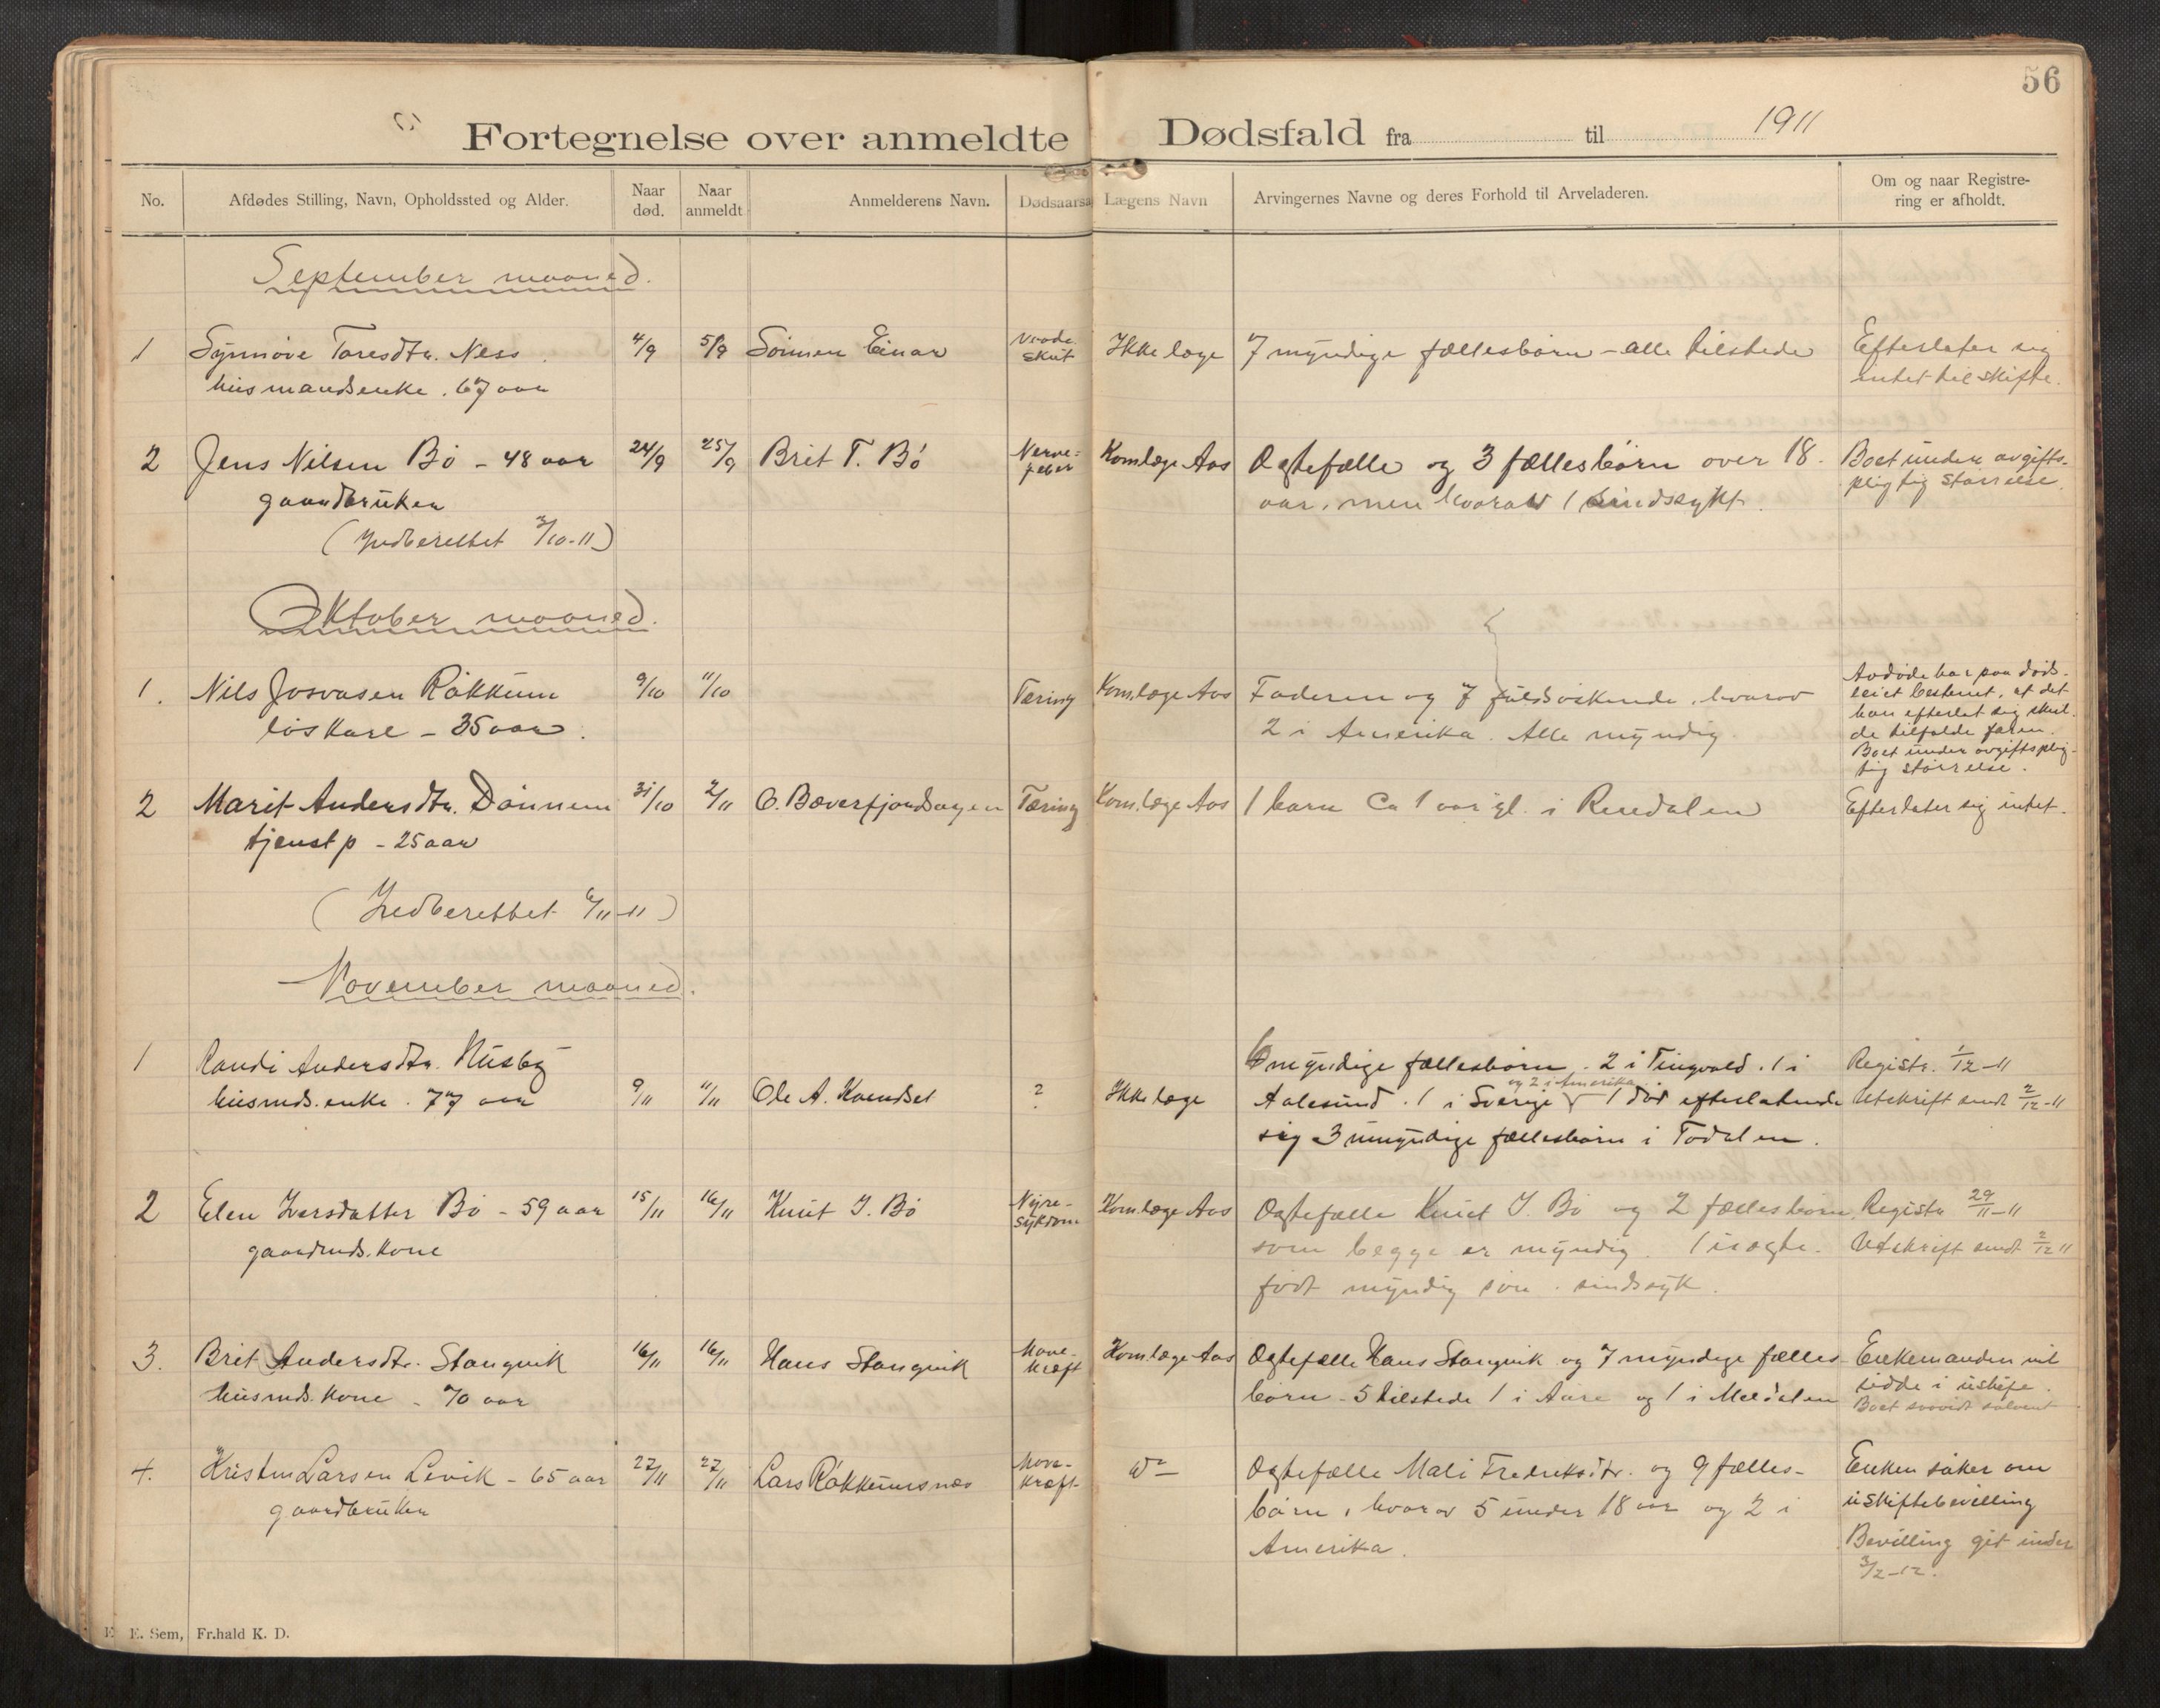 56
Fortegnelse over anmeldte Dødsfald fra til 1911
No. Afdødes Stilling, Navn, Opholdssted og Alder. Naar død. Naar anmeldt Anmelderens Navn. Dødsaarsa Lægens Navn Arvingernes Navne og deres Forhold til Arveladeren. Om og naar Registrering er afholdt.
September maaned.
1 Synnøve Toresdtr. Ness 4/9 5/9 Sönnen Einar skut Ikke læge 7 myndige fællesbørn - alle tilstede Efterlater sig
husmandsenke . 67 aar intet til skifte.
2 Jens Nilsen Bö - 48 aar 24/9 25/9 Brit T. Bö Nerve- Kom.læge Aas Ægtefælle og 3 fællesbörn over 18 Boet under avgifts-
gaardbruker feber aar, men hvorav 1 sindssykt. pligtig störrelse.
(Indberettet 3/10-11)
Oktober maaned.
1. Nils Josvasen Räkkum 9/10 11/10 Tæring Kom.læge Aas Faderen og 7 fuldsöskende, hvorav Avdöde har paa döds-
löskarl - 35 aar. 2 i Amerika. Alle myndig. leiet bestemt, at det
han efterlot sig skul-
de tilfalde faren.
Boet under avgiftsplig-
tig störrelse.
2 Marit Andersdtr. Dönnem 31/10 2/11 O. Bæverfjordsagen Tæring Kom.læge Aas 1 barn ca 1 aar gl. i Rindalen Efterlater sig intet.
tjenst p - 25 aar
(Indberettet 6/11-11)
November maaned.
1 Randi Andersdtr. Husby 6 myndige fællesbörn . 2 i Tingvold . 1 i Registr. 1/12-11
og 2 i Amerika
husmds.enke . 77 aar 9/11 11/11 Ole A. Kvendset ? Ikke læge Aalesund . 1 i Sverige 1 död efterlatende Utskrift sendt 2/12-11
sig 3 umyndige fællesbörn i Todalen.
2 Elen Iversdatter Bö - 59 aar 15/11 16/11 Knut I. Bö Nyre- Kom.læge Aas Ægtefælle Knut I. Bö og 2 fællesbörn Registr 29/11-11
gaardmds.kone sykdom som begge er myndig. 1 uægte- Utskrift sendt 2/12 11
född myndig sön . sindssyk.
3. Brit Andersdtr. Stangvik 16/11 16/11 Hans Stangvik Mave- Kom.læge Aas Ægtefælle Hans Stangvik og 7 myndige fælles- Enkemanden vil
husmds.kone - 70 aar kræft börn - 5 tilstede 1 i Aure og 1 i Meldalen sidde i uskifte.
Boet solvent
4. Kristen Larsen Levik - 65 aar 22/11 27/11 Lars Räkkumsnæs Mave- do Ægtefælle Mali Fredriksdtr. og 9 fælles- Enken söker om
gaardbruker kræft börn, hvorav 5 under 18 aar og 2 i uskiftebevilling
Amerika. Bevilling git under
3/2-12.
E. Sem, Fr.hald K. D.